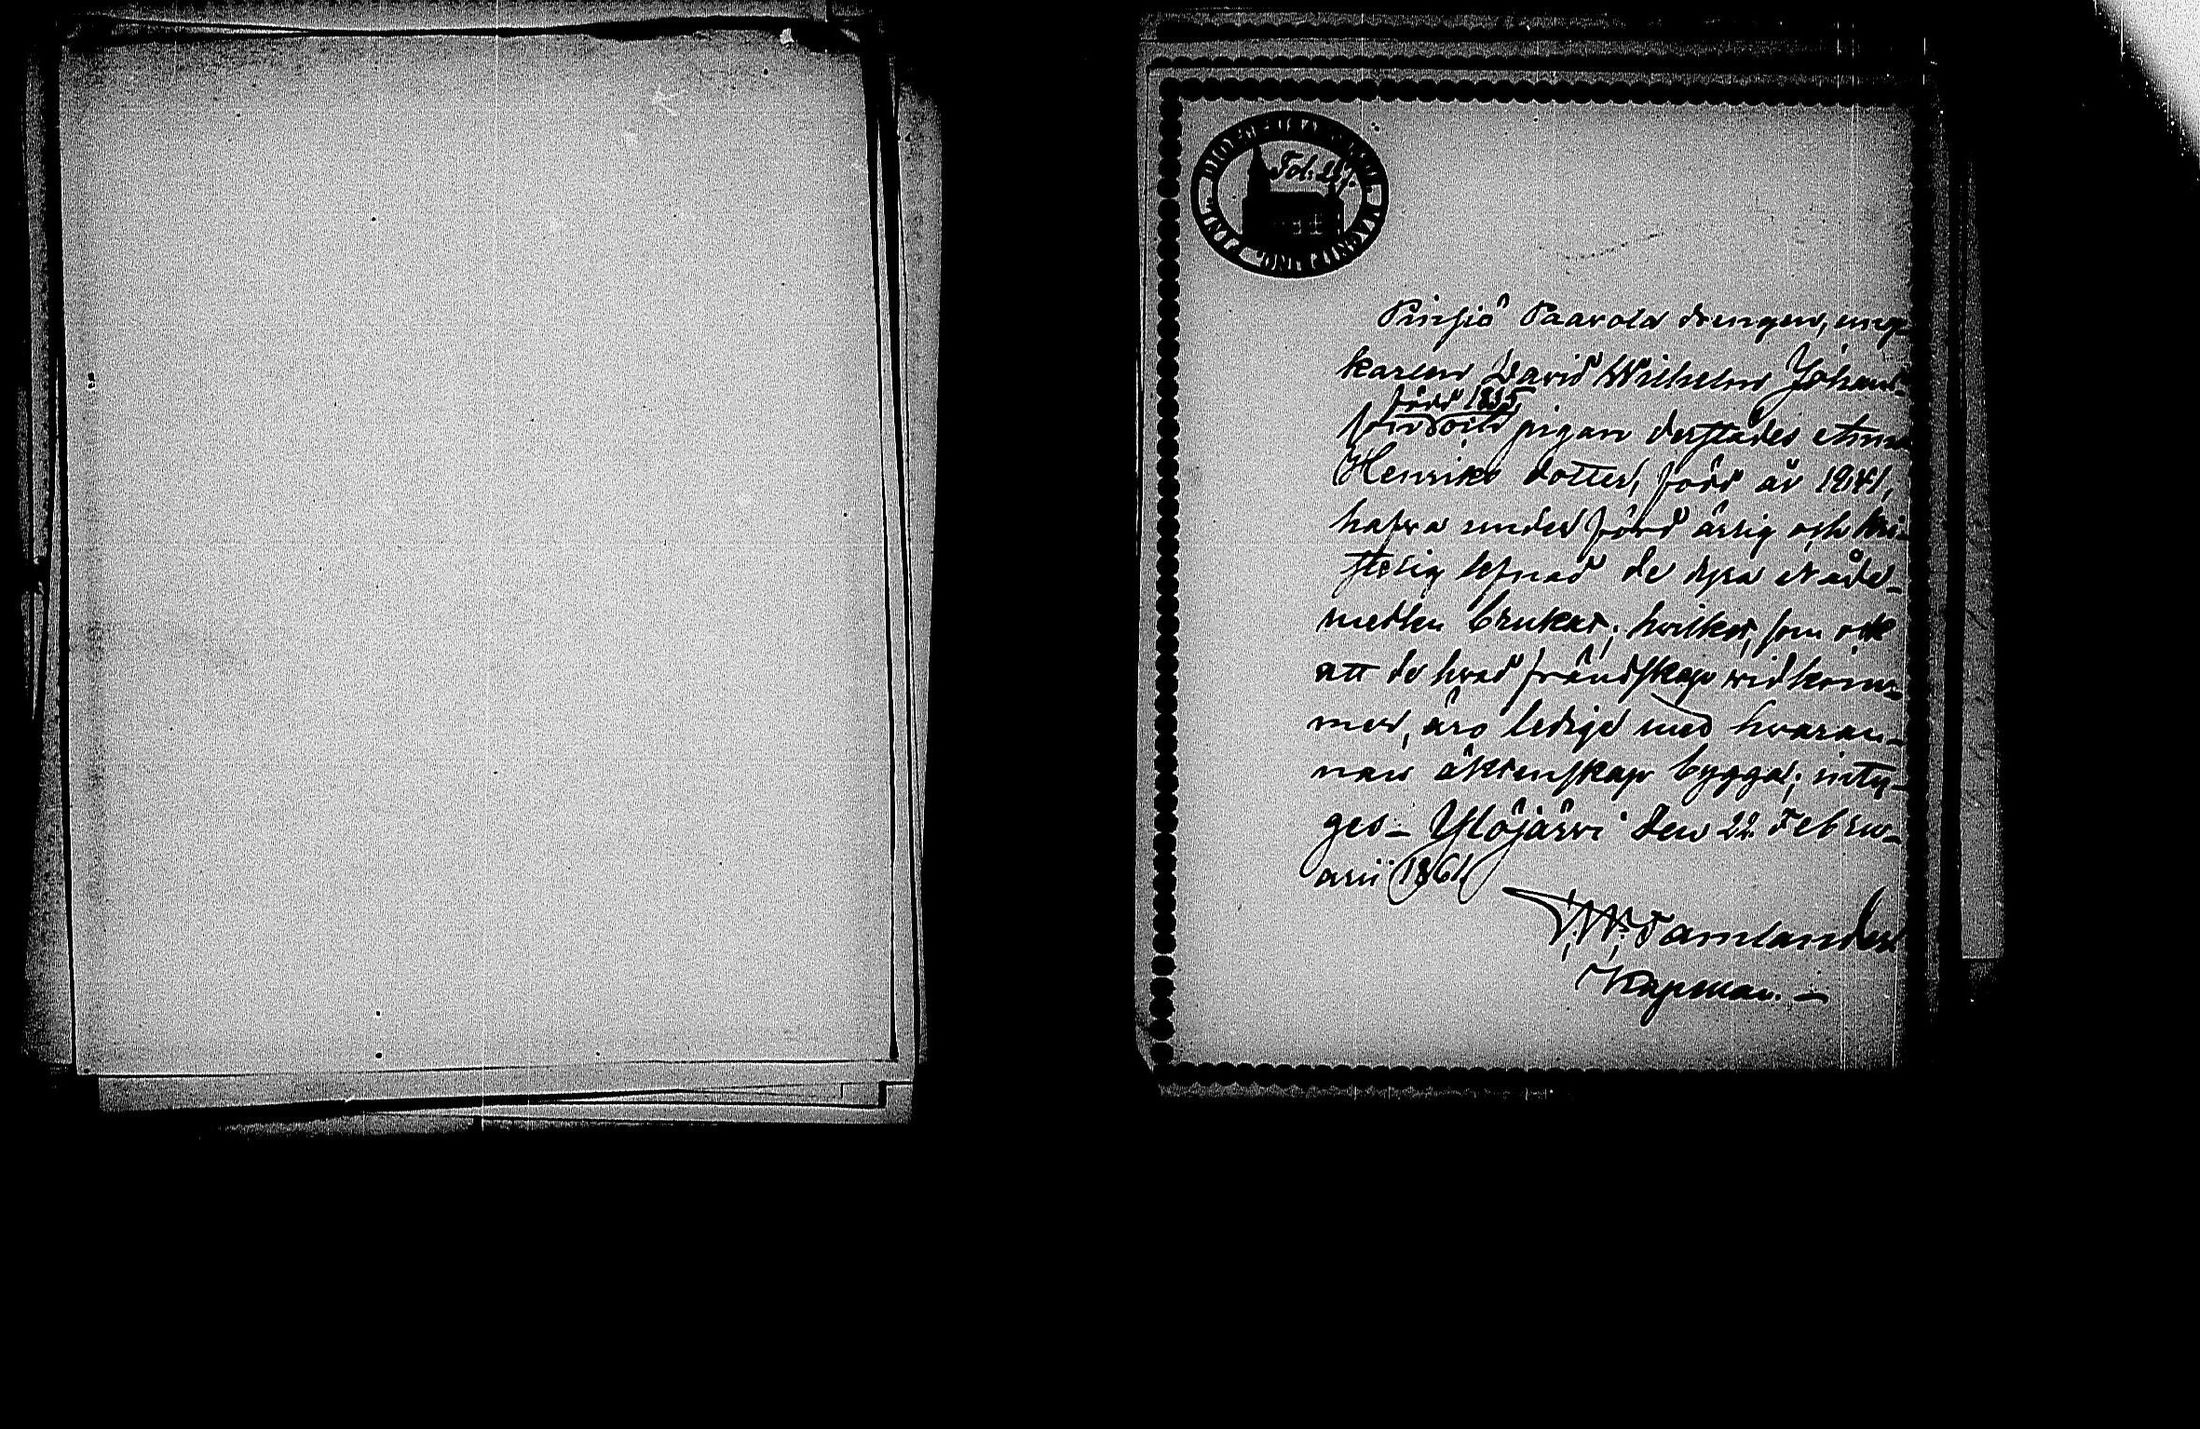 Fol. 27.
Pinsiö Paavola drengen, ung-
karlen David Wilhelm Johans-
född 1835
son och pigan derstädes Anna
Henriks dotter, född år 1841,
hafva under förd ärlig och kri-
stelig lefnad de dyra Nåde-
medlen brukat; hvilket, som ock
att de hvad frändskap widkom-
mer, äro ledige med hvaran-
nan äktenskap bygga; inty-
gas – Ylöjärvi den 22 Febru-
arii 1861.
Tamlander
Kapellan. –